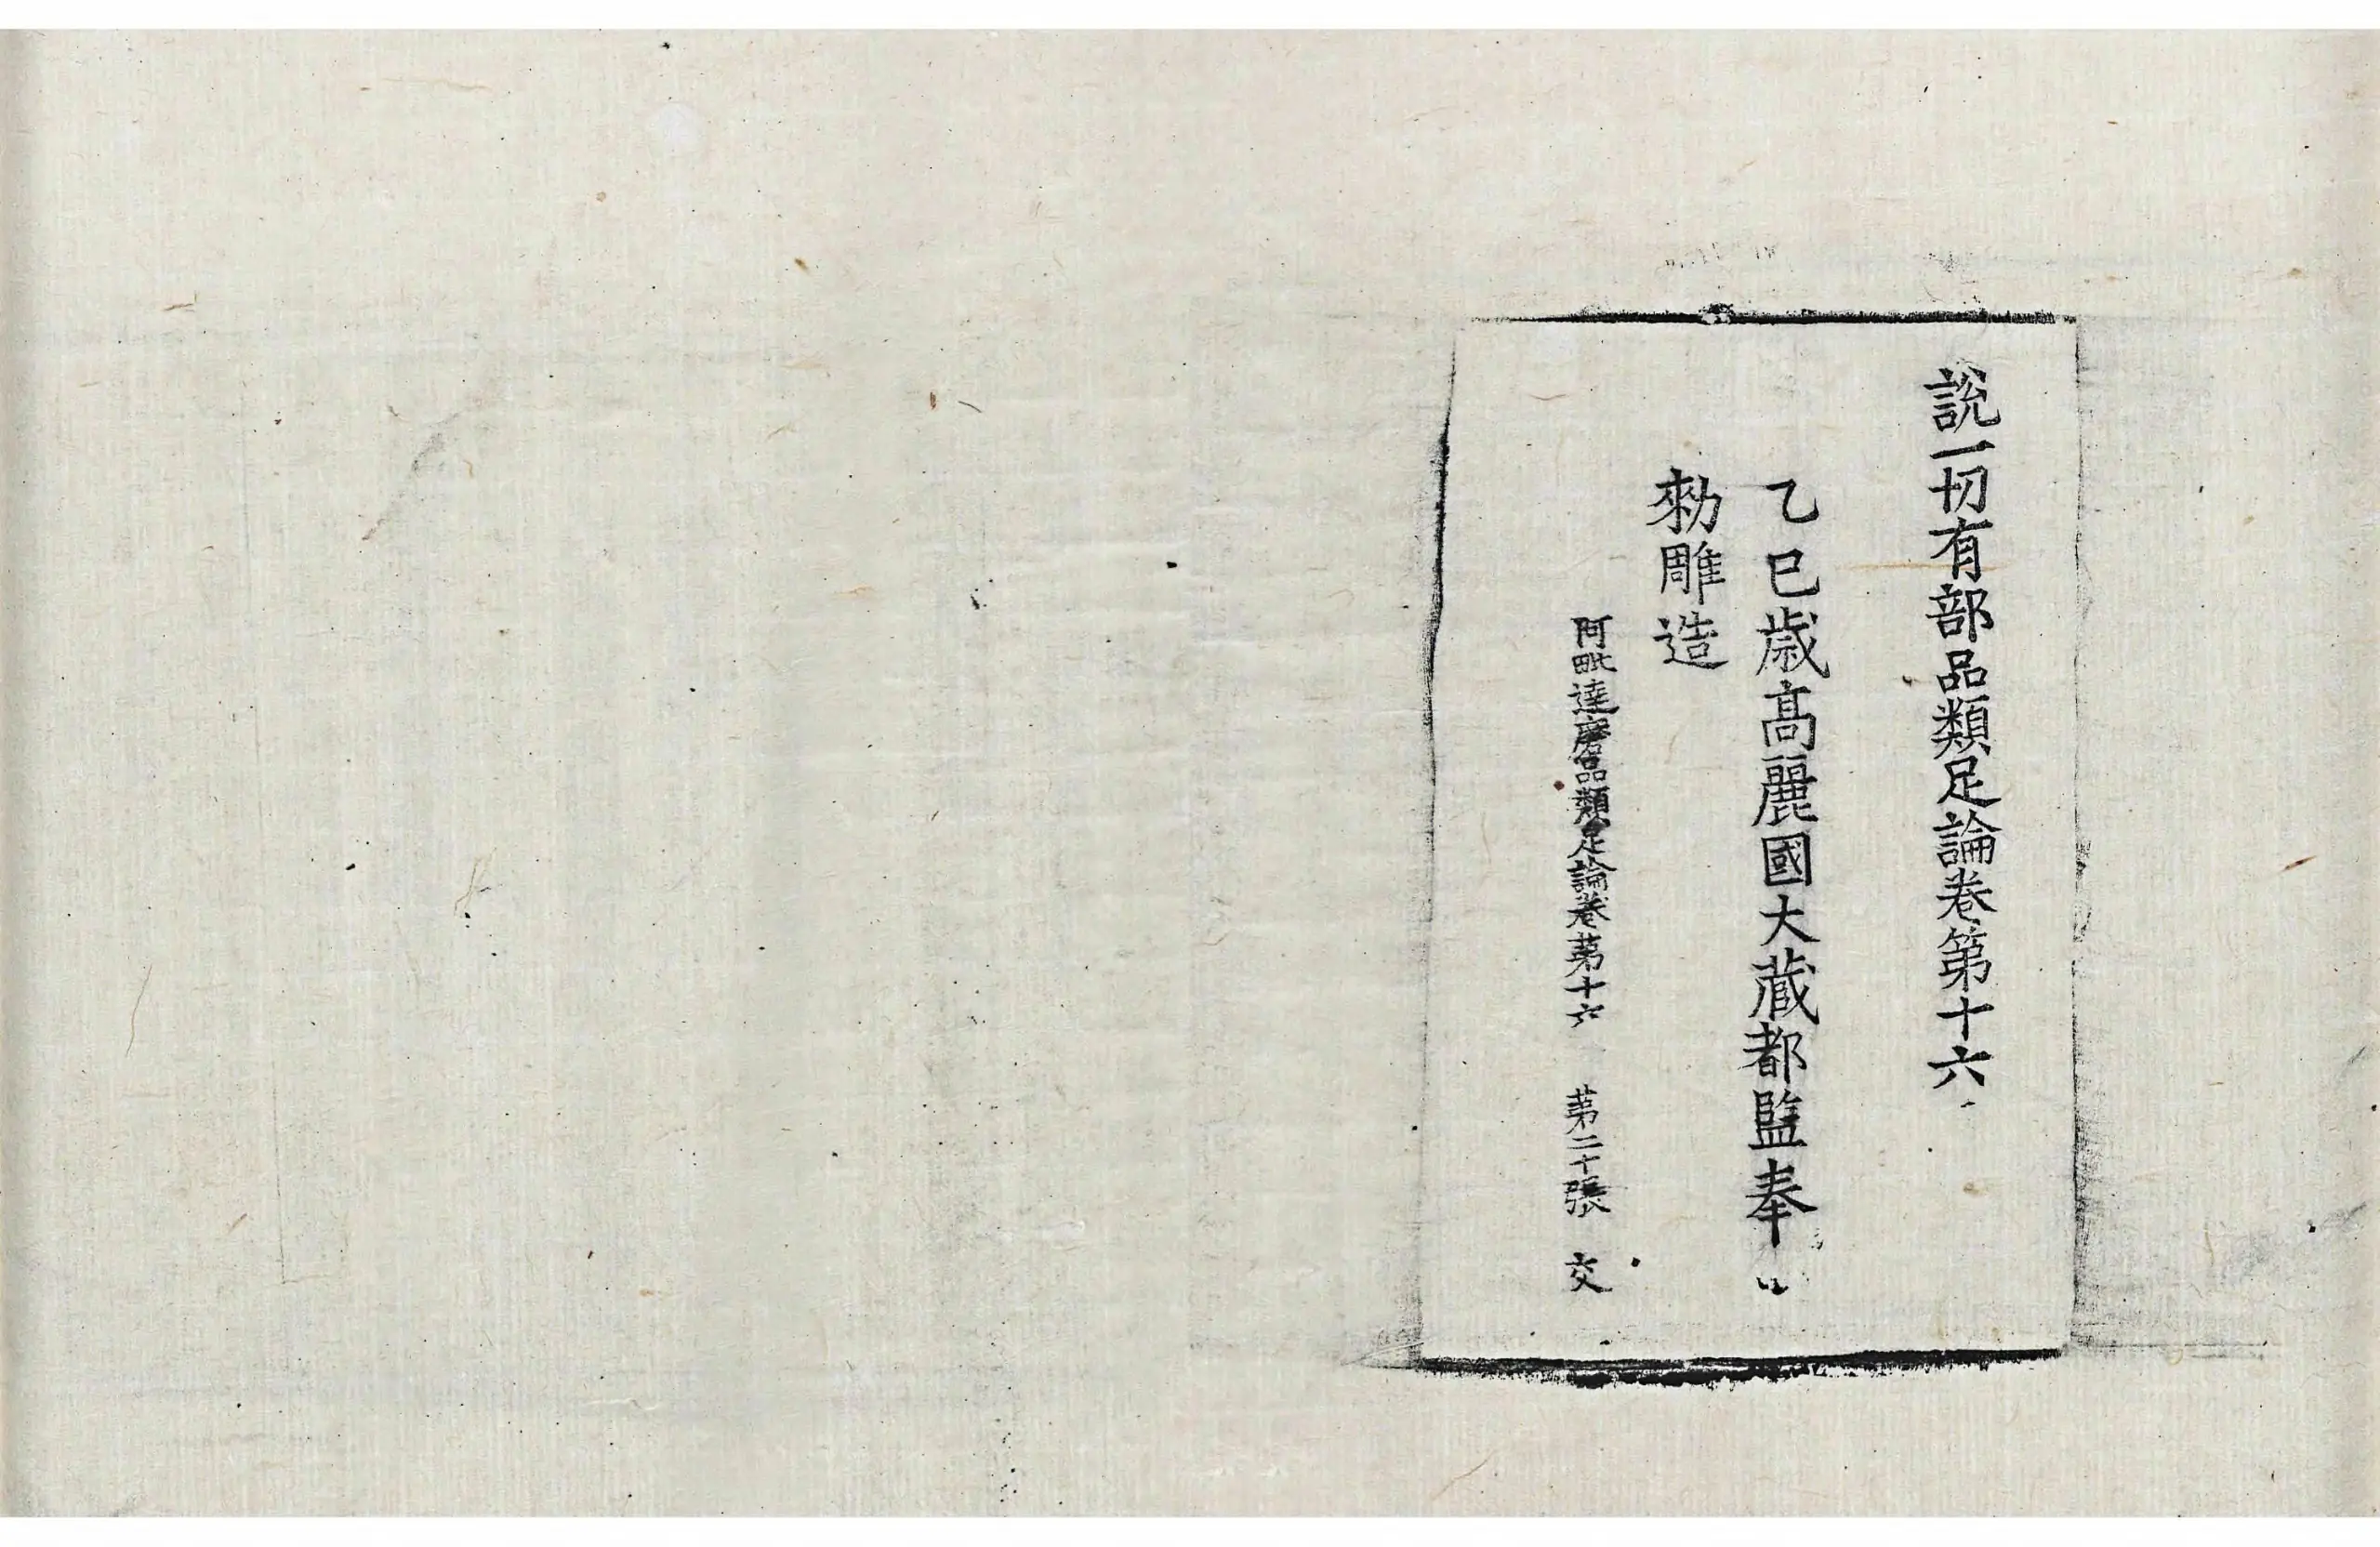 說一切有部品類足論卷第十六
乙巳歲高麗國大藏都監奉
勑雕造
阿毗達磨品類足論卷第十六 第二十張 交